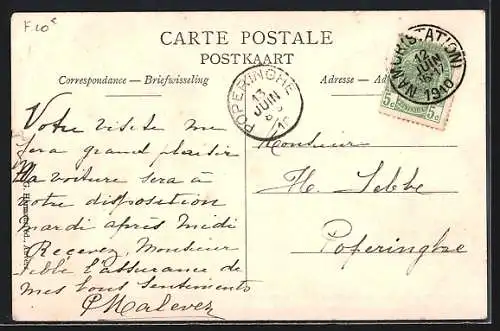 F 10 c
CARTE POSTALE
POSTKAART
Correspondance — Briefwisseling
Adresse — Ad
POPERINGHE
13
JUIN
1910
NAMUR (STATION)
12
JUIN
1910
5c 5c
Votre visite me
sera grand plaisir
Ma voiture sera à
votre disposition
mardi après midi
Recevez, Monsieur
Sebbe l'assurance de
mes bons sentiments
P Malevez
Monsieur
H. Sebbe
Poperinghe